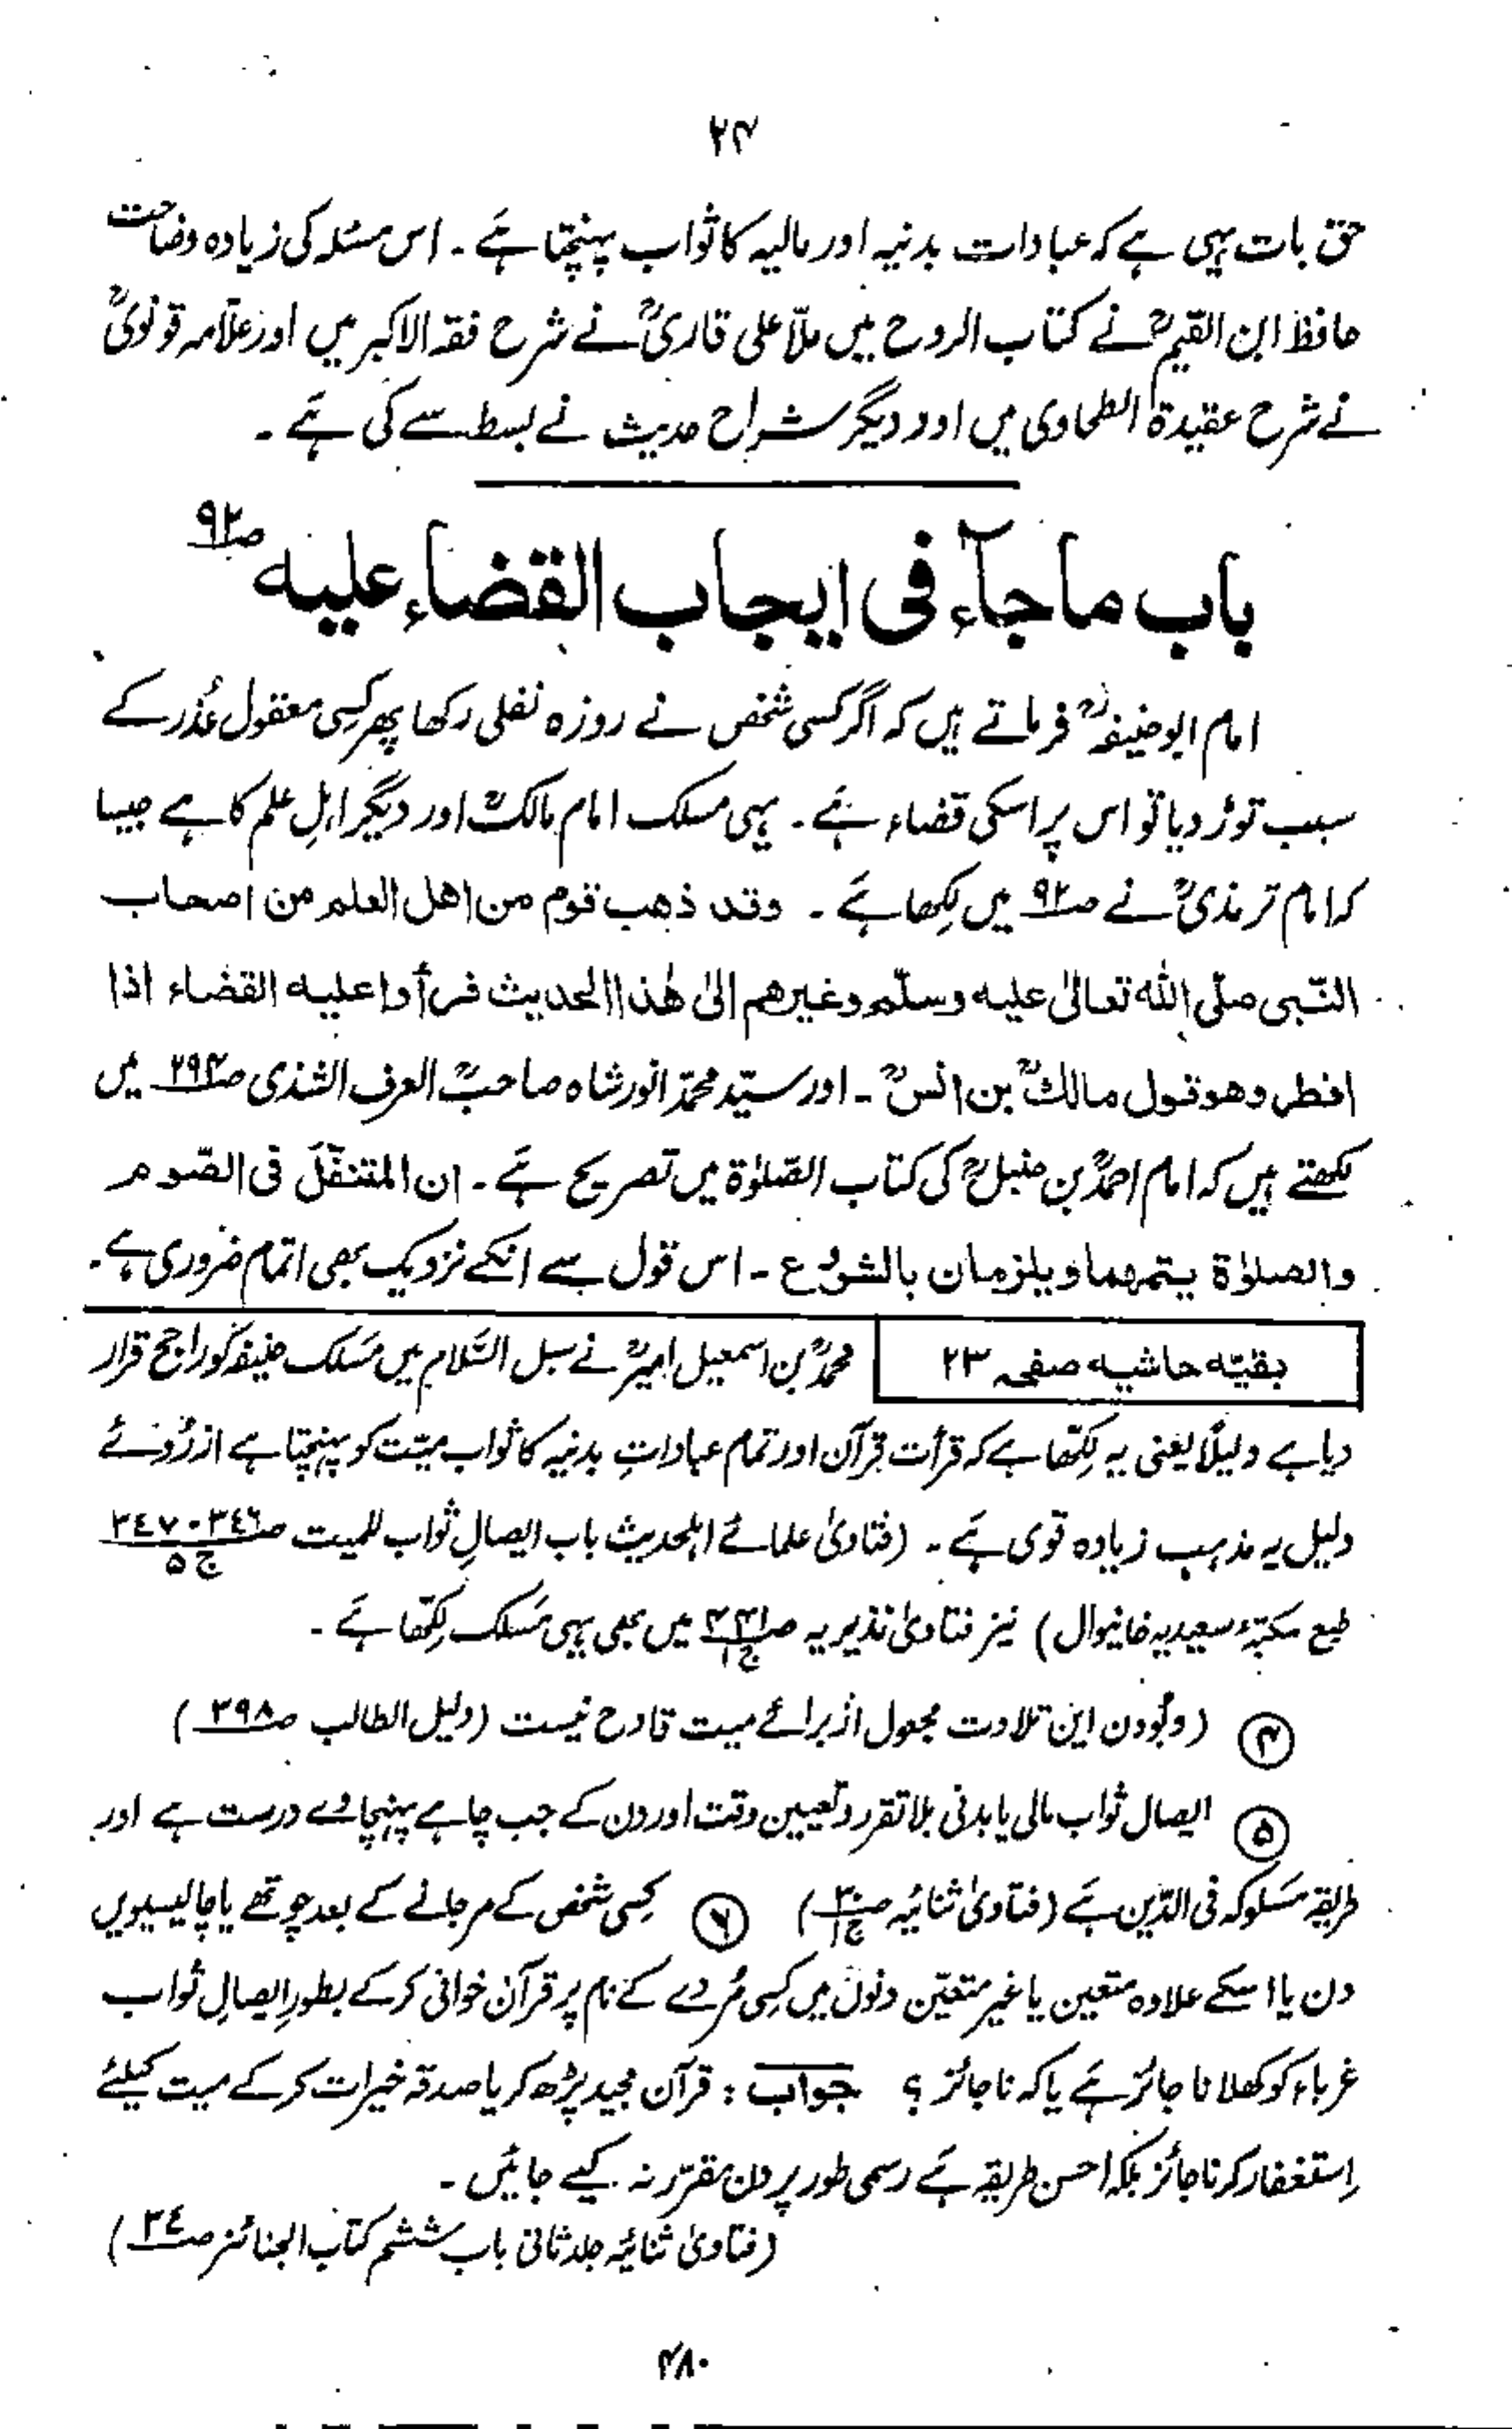 ۲۴
حق بات یہی ہے کہ عبادات بدنیہ اور مالیہ کا ثواب پہنچتا ہے ۔ اس مسئلہ کی زیادہ وضاحت
حافظ ابن القیمؒ نے کتاب الروح میں ملّا علی قاریؒ نے شرح فقہ الاکبر میں اور علاّمہ قونویؒ
نے شرح عقیدۃ الطحاوی میں اور دیگر شراح حدیث نے بسط سے کی ہے ۔
باب ما جآء فی ایجاب القضاء علیه صـ۹۲
امام ابوحنیفہؒ فرماتے ہیں کہ اگر کسی شخص نے روزہ نفلی رکھا پھر کسی معقول عُذر کے
سبب توڑ دیا تو اس پر اسکی قضاء ہے ۔ یہی مسلک امام مالکؒ اور دیگر اہلِ علم کا ہے جیسا
کہ امام ترمذیؒ نے صـ۹۲ میں لکھا ہے ۔ وقد ذهب قوم من اهل العلم من اصحاب
النّبی صلّی اللّٰه تعالیٰ علیه وسلّم وغیرهم الیٰ هٰذا الحدیث فرأوا علیه القضاء اذا
افطر وهو قول مالکؒ بن انسؒ ۔ اور سیّد محمّد انور شاہ صاحبؒ العرف الشذی صـ۲۹۴ میں
لکھتے ہیں کہ امام احمدؒ بن حنبلؒ کی کتاب الصّلوٰۃ میں تصریح ہے ۔ ان المتنفّل فی الصّوم
والصلوٰة یتمهما ویلزمان بالشروع ۔ اس قول سے انکے نزدیک بھی اتمام ضروری ہے ۔
بقیّہ حاشیہ صفحہ ۲۳
محمدؒ بن اسمعیل امیرؒ نے سبل السّلام میں مَسلک حنفیہ کو راجح قرار
دیا ہے دلیلاً یعنی یہ لکھا ہے کہ قرأت قرآن اور تمام عباداتِ بدنیہ کا ثواب میّت کو پہنچتا ہے از رُوئے
دلیل یہ مذہب زیادہ قوی ہے ۔ (فتاویٰ علمائے اہلحدیث باب ایصالِ ثواب للمیت صـ۳۴۶-۳۴۷ ج ۵
طبع مکتبہ سعیدیہ خانیوال) نیز فتاویٰ نذیریہ صـ۴۴۱ ج۱ میں بھی یہی مَسلک لکھا ہے ۔
۴ (و بُودن این تلاوت مجعول از برائے میت قادح نیست (دلیل الطالب صـ۳۹۸)
۵ ایصال ثواب مالی یا بدنی بلا تقرر و تعیین وقت اور دن کے جب چاہے پہنچا دے درست ہے اور
طریقہ مَسلوکہ فی الدّین ہے (فتاویٰ ثنائیہ صـ۳۰ ج۱) ۶ کسی شخص کے مر جانے کے بعد چوتھے یا چالیسیویں
دن یا اسکے علاوہ متعین یا غیر متعیّن دنوں میں کسی مُردے کے نام پر قرآن خوانی کر کے بطورِ ایصالِ ثواب
غرباء کو کھلانا جائز ہے یا کہ ناجائز ؟ جواب : قرآن مجید پڑھ کر یا صدقہ خیرات کر کے میت کیلئے
اِستغفار کرنا جائز بلکہ احسن طریقہ ہے رسمی طور پر دن مقرّر نہ کیے جائیں ۔
(فتاویٰ ثنائیہ جلد ثانی باب ششم کتاب الجنائز صـ۳۴)
۴۸۰